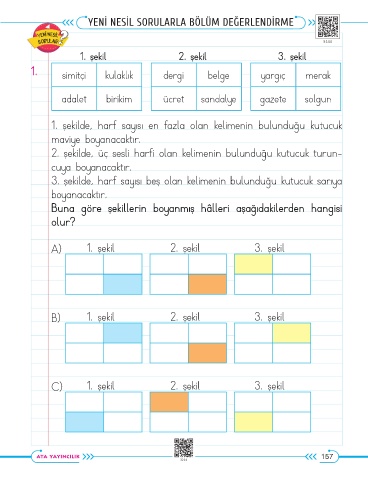 YENİ NESİL SORULARLA BÖLÜM DEĞERLENDİRME
YENİ NESİL
SORULAR
1. şekil 2. şekil 3. şekil
1.
simitçi kulaklık dergi belge yargıç merak
adalet birikim ücret sandalye gazete solgun
1. şekilde, harf sayısı en fazla olan kelimenin bulunduğu kutucuk
maviye boyanacaktır.
2. şekilde, üç sesli harfi olan kelimenin bulunduğu kutucuk turun-
cuya boyanacaktır.
3. şekilde, harf sayısı beş olan kelimenin bulunduğu kutucuk sarıya
boyanacaktır.
Buna göre şekillerin boyanmış hâlleri aşağıdakilerden hangisi
olur?
A) 1. şekil 2. şekil 3. şekil
B) 1. şekil 2. şekil 3. şekil
C) 1. şekil 2. şekil 3. şekil
ATA YAYINCILIK
157